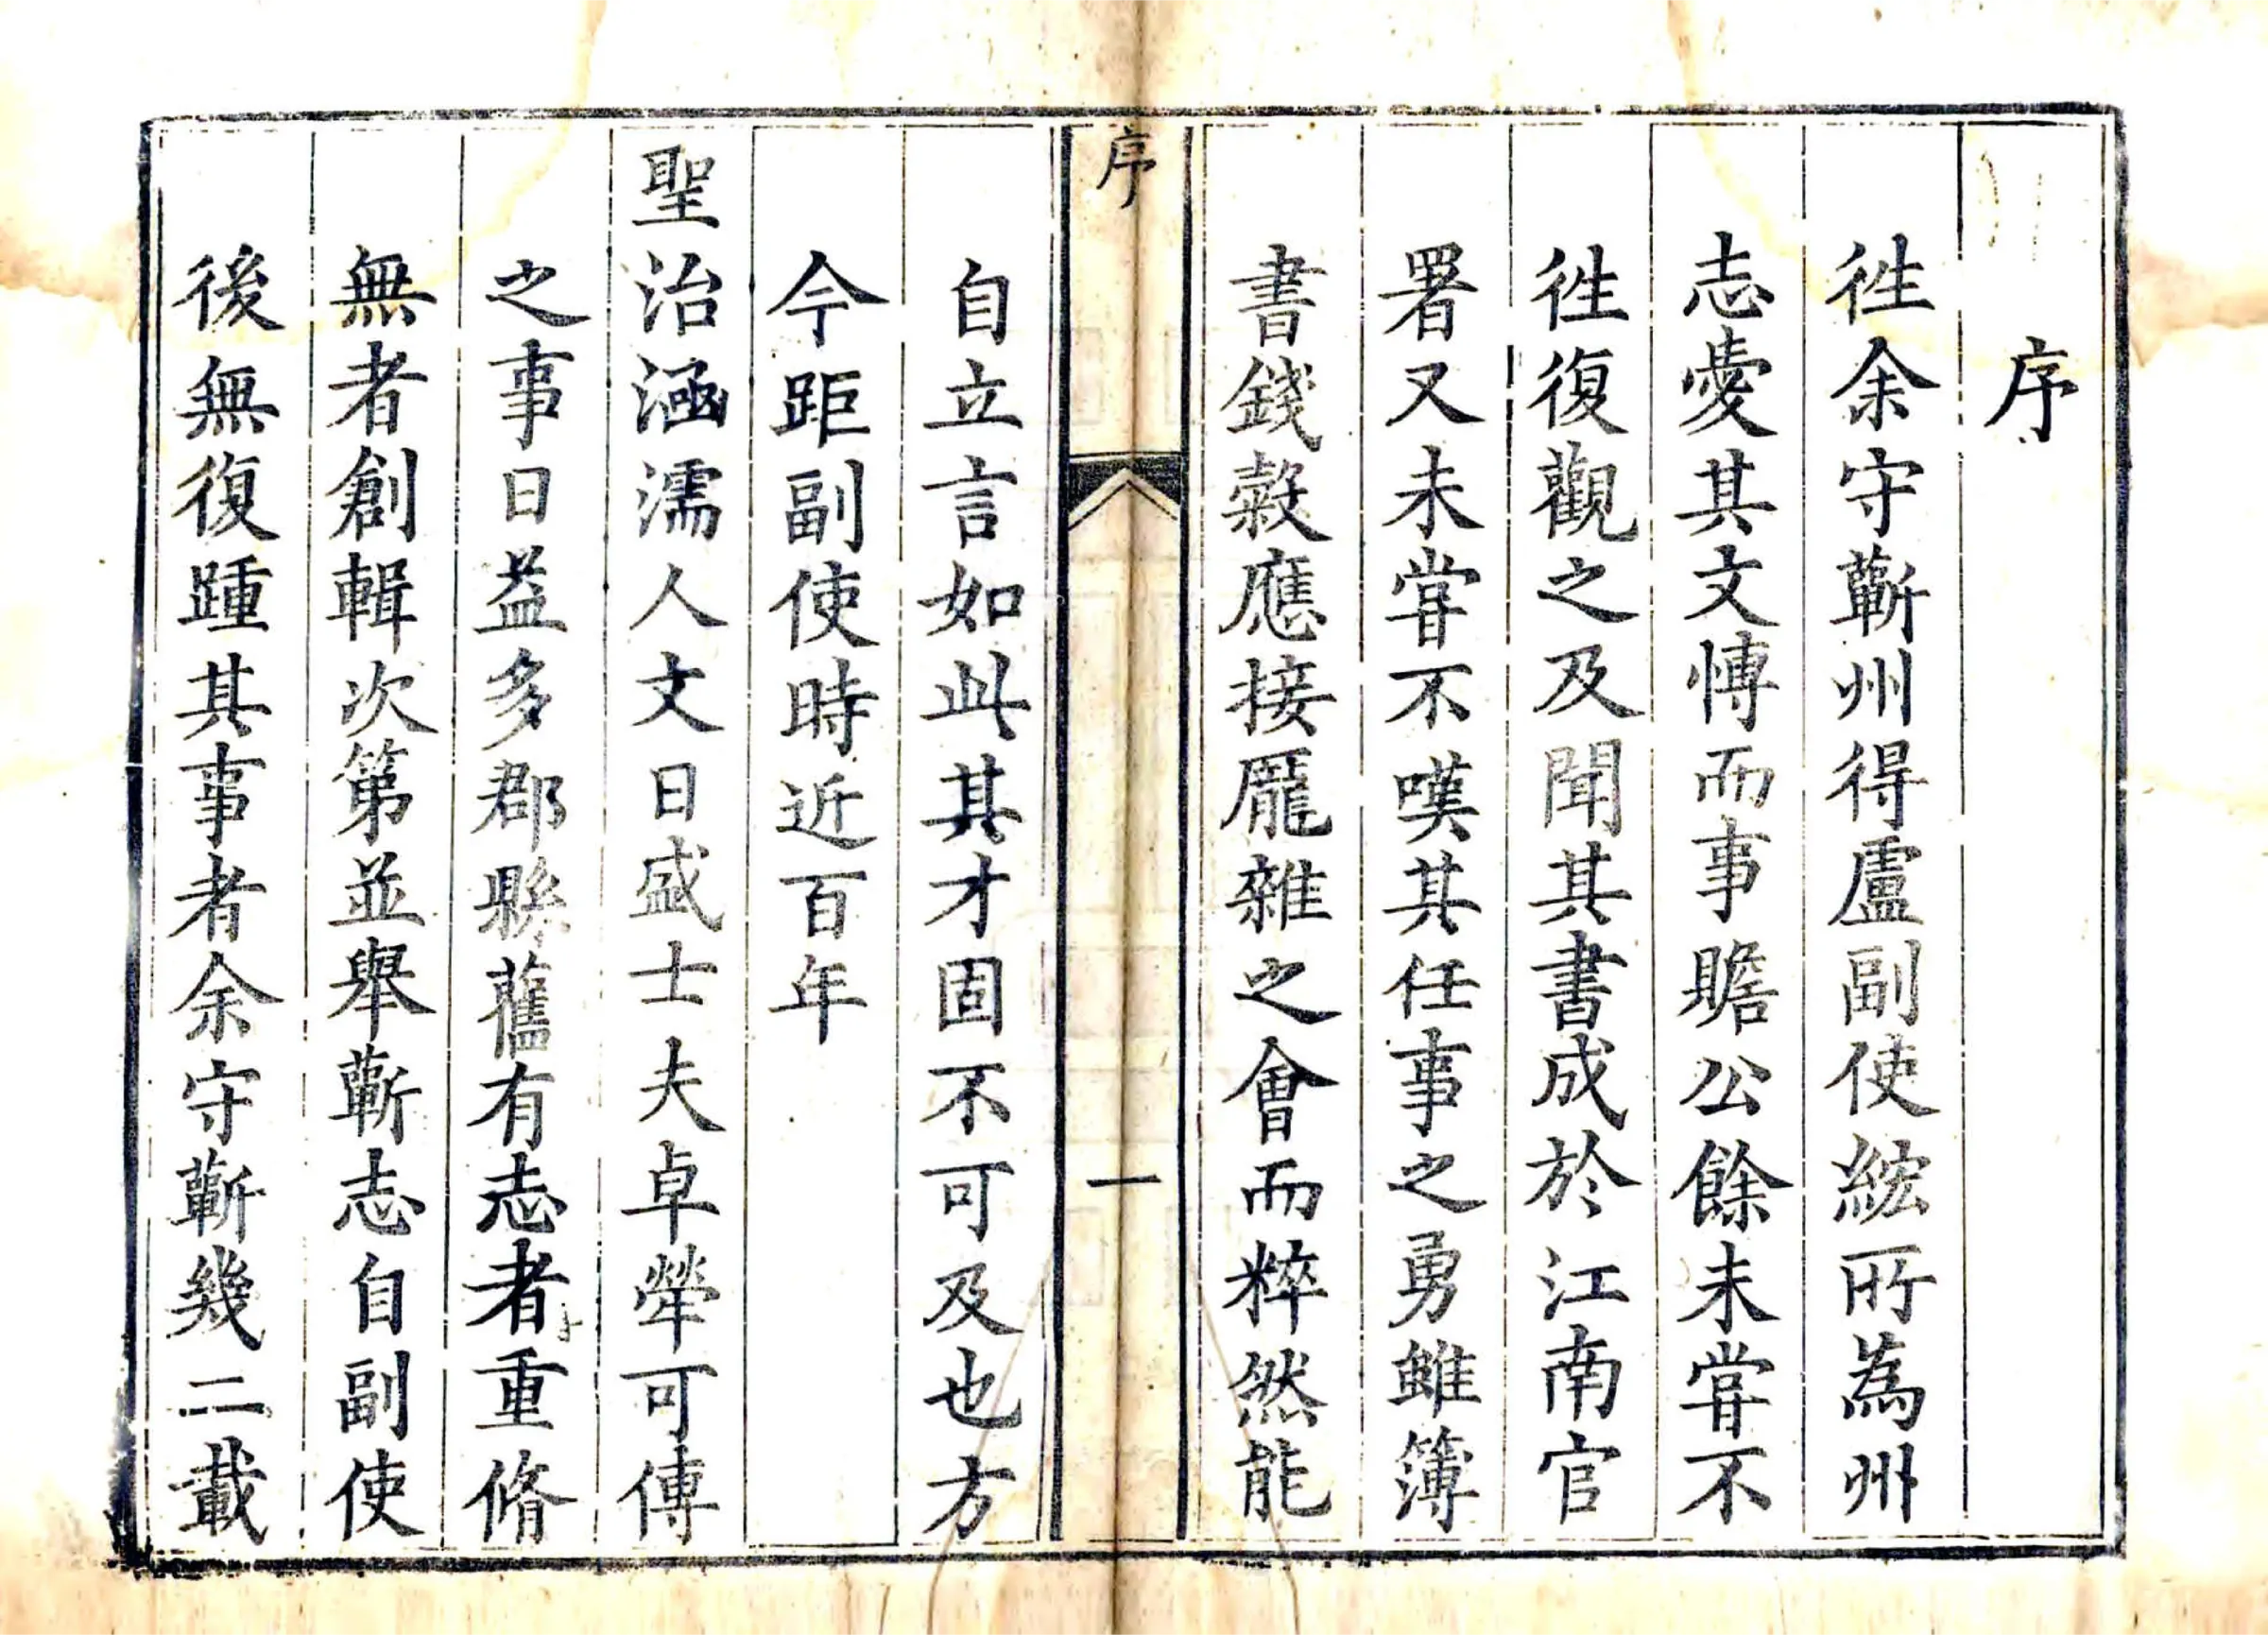 序
徃余守蘄州得盧副使綋所為州
志愛其文博而事贍公餘未甞不
徃復觀之及聞其書成於江南官
署又未甞不嘆其任事之勇雖簿
書錢穀應接厖雜之會而粹然能
序
一
自立言如此其才固不可及也方
今距副使時近百年
聖治涵濡人文日盛士夫卓犖可傳
之事日益多郡縣舊有志者重脩
無者創輯次第並舉蘄志自副使
後無復踵其事者余守蘄幾二載